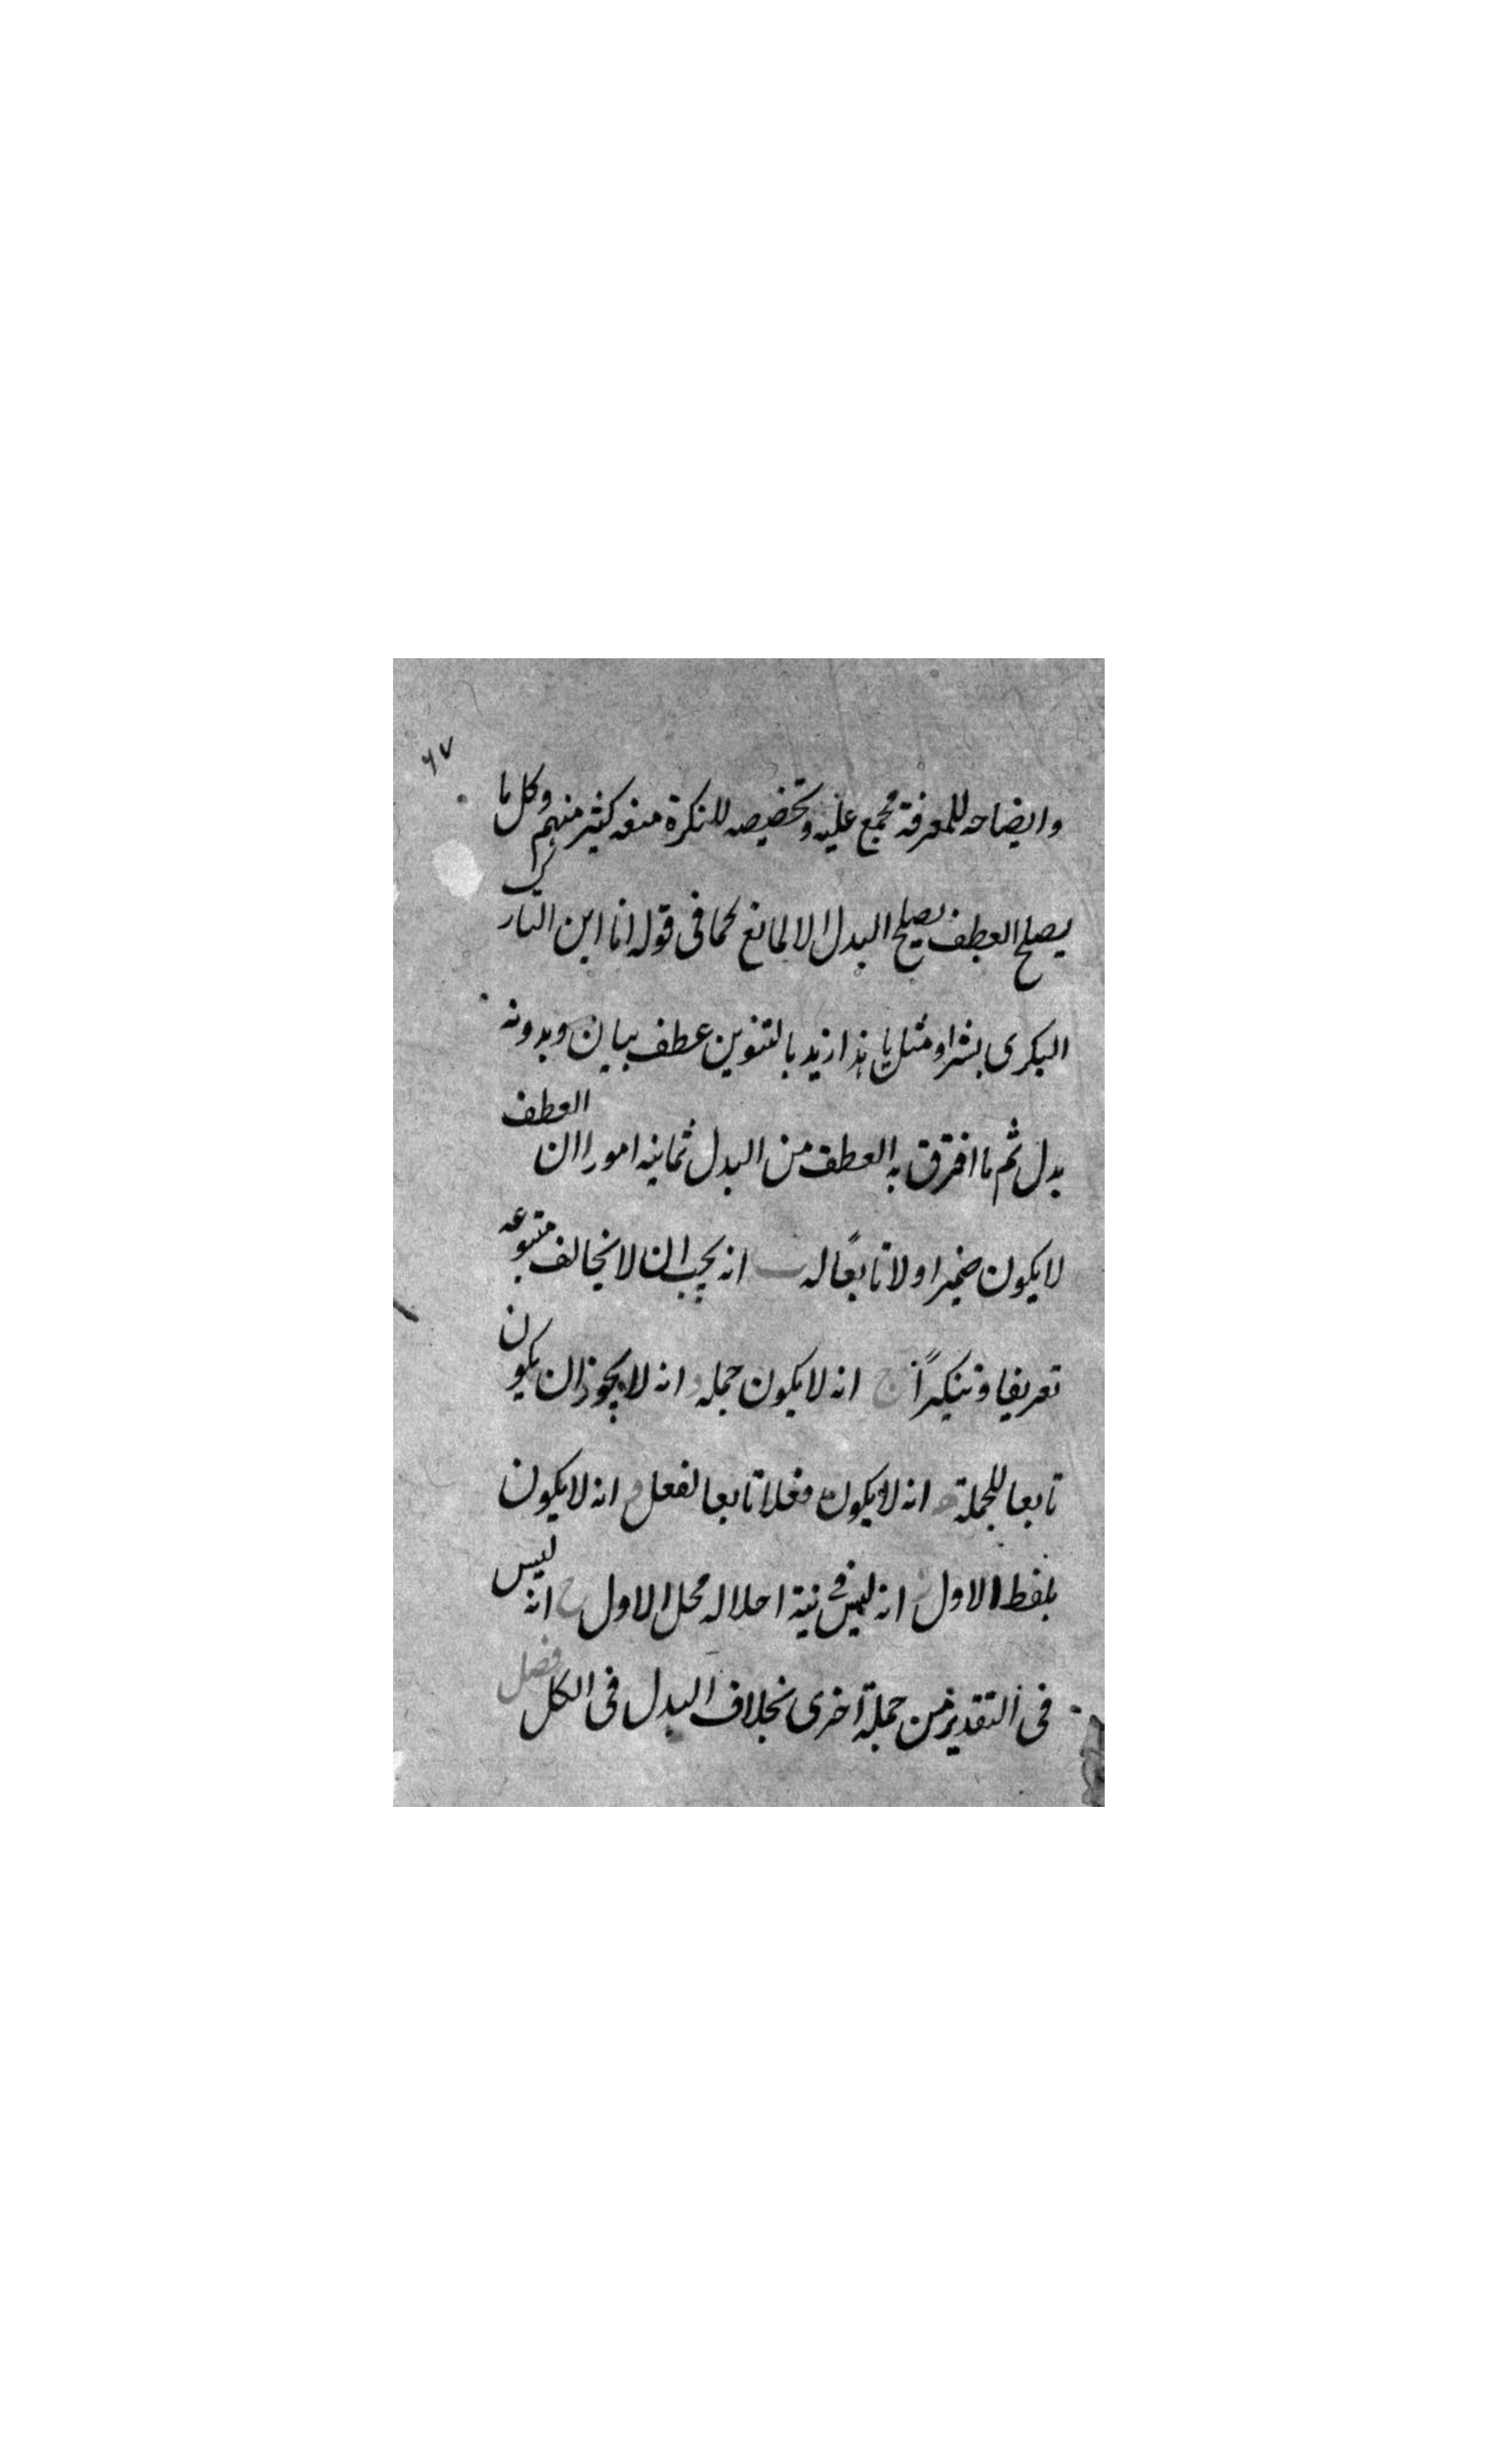 ٦٧
وايضاحه للمعرفة مجمع عليه وتخصيصه للنكرة منعه كثير منهم وكل ما
يصلح العطف يصلح البدل الا لمانع كما فى قوله انا ابن التارك
البكرى بشرا ومثل يا هذا زيد بالتنوين عطف بيان وبدونه
بدل ثم ما افترق به العطف من البدل ثمانية امور ا ان العطف
لا يكون ضميرا ولا تابعًا له ب انه يجب ان لا يخالف متبوعه
تعريفا وتنكيرًا ج انه لا يكون جملة د انه لا يجوز ان يكون
تابعا للجملة ه انه لا يكون فعلا تابعا لفعل و انه لا يكون
بلفظ الاول ز انه ليس فى نية احلاله محل الاول ح انه ليس
فى التقدير من جملة اخرى بخلاف البدل فى الكل فصل